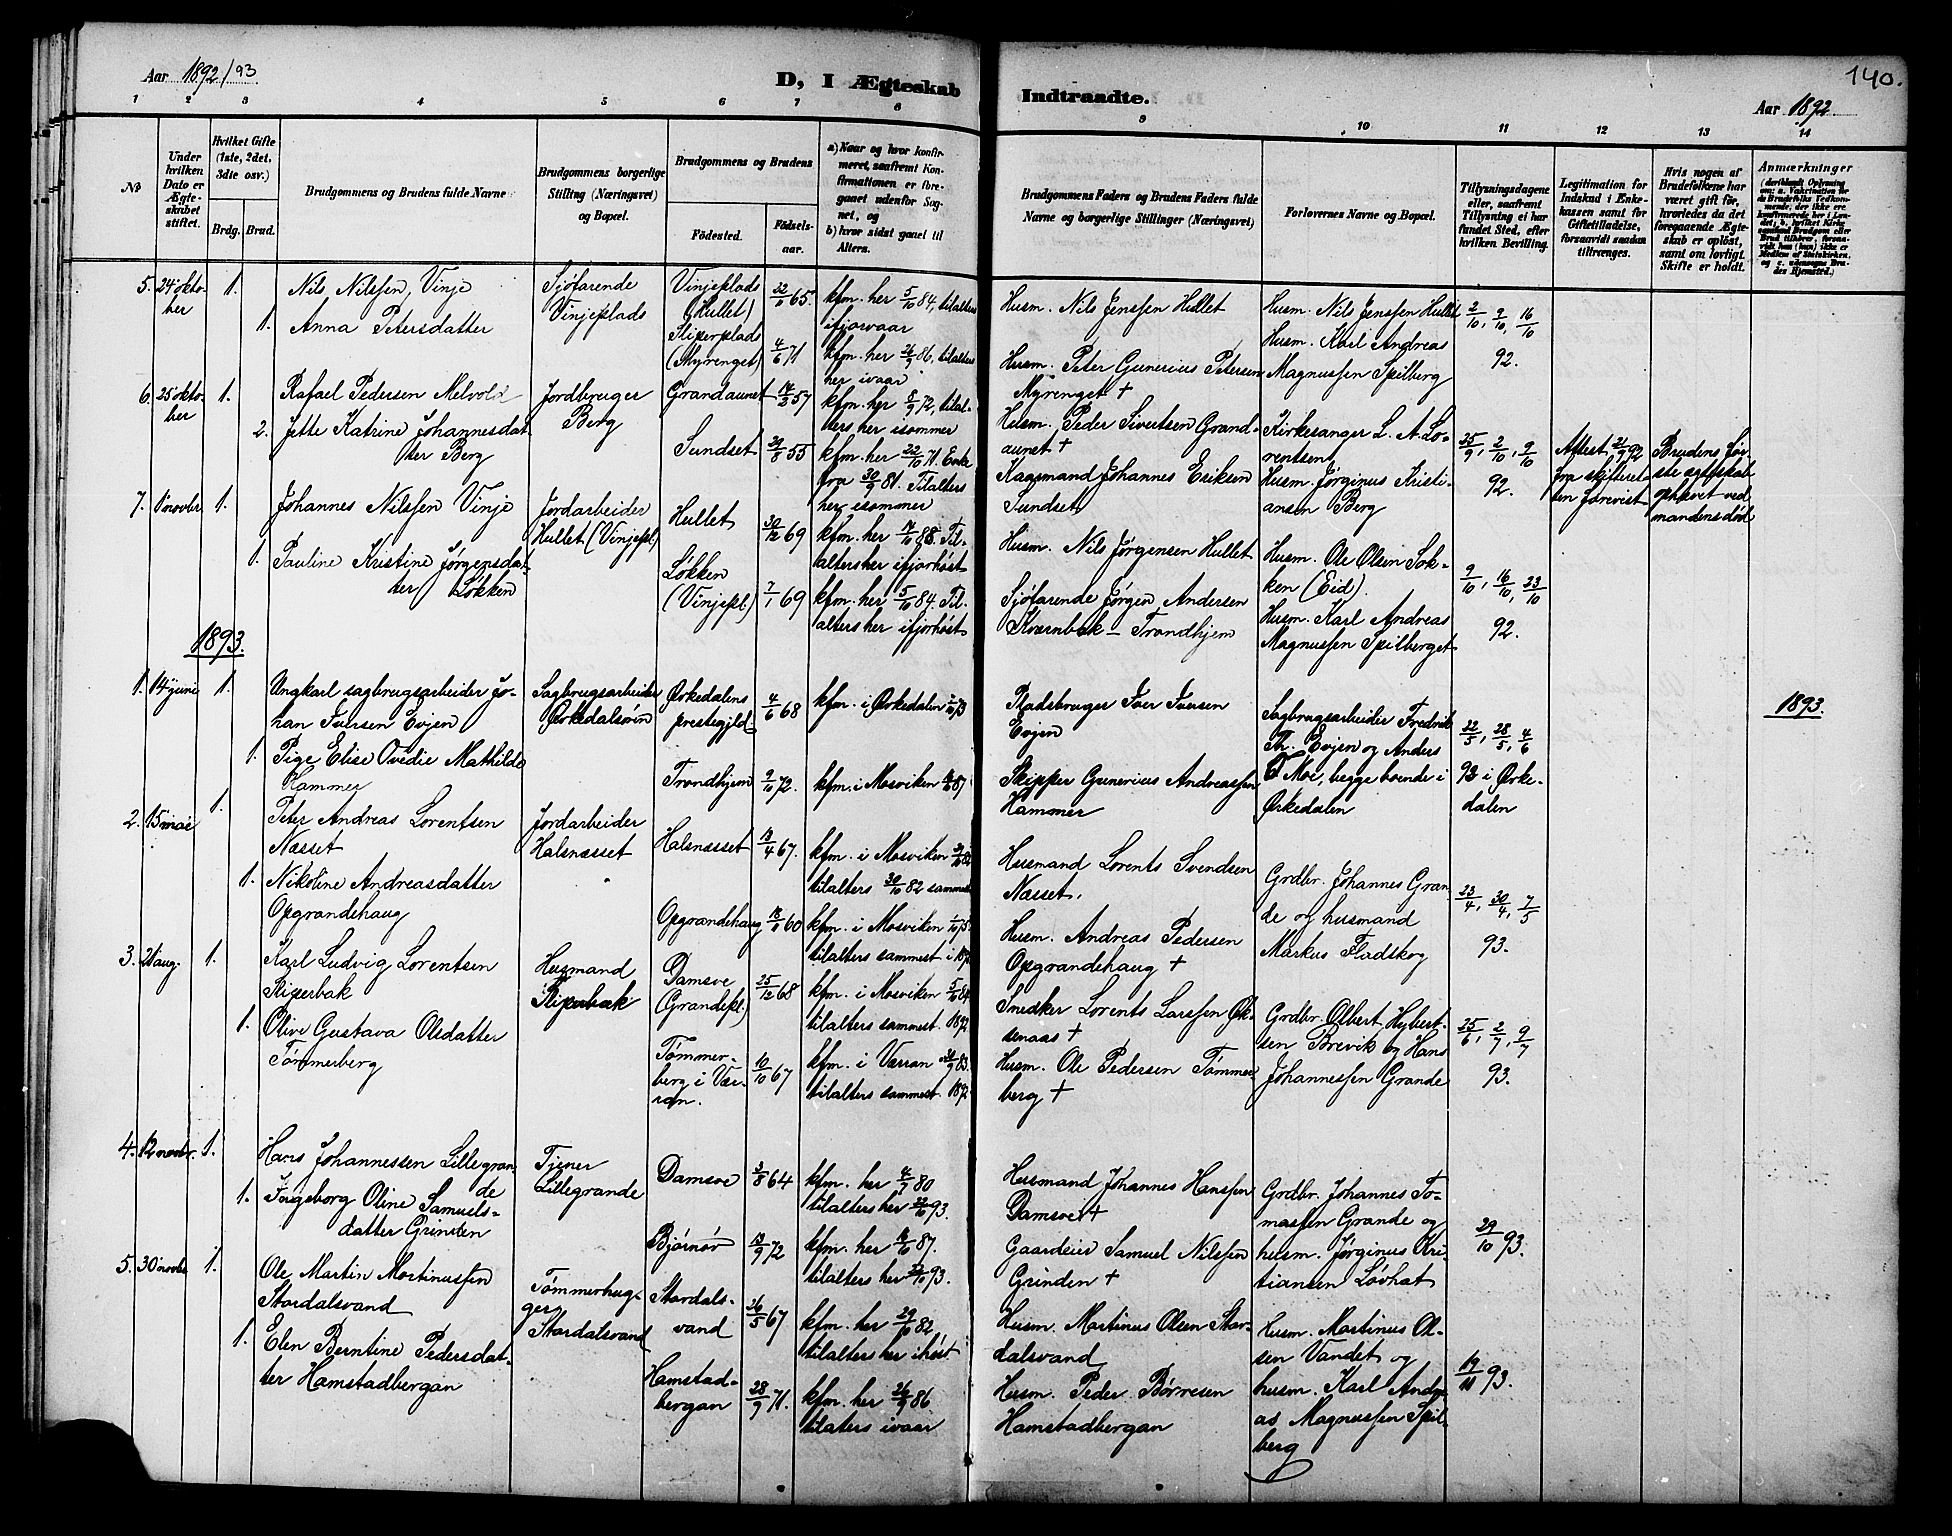 Aar 1892/93
D, I Ægteskab
Indtraadte.
Aar 1892
140.
1 2 3 4 5 6 7 8 9 10 11 12 13 14
No
Under hvilken Dato er Ægteskabet stiftet.
Hvilket Gifte (1ste, 2det, 3die osv.)
Brdg. Brud.
Brudgommens og Brudens fulde Navne
Brudgommens borgerlige Stilling (Næringsvei) og Bopæl.
Brudgommens og Brudens
Fødested. Fødselsaar.
a) Naar og hvor konfirmeret, saafremt Konfirmationen er foregaaet udenfor Sognet, og
b) hvor sidst gaaet til Alters.
Brudgommens Faders og Brudens Faders fulde Navne og borgerlige Stillinger (Næringsvei)
Forlovernes Navne og Bopæl.
Tillysningsdagene eller, saafremt Tillysning ei har fundet Sted, efter hvilken Bevilling.
Legitimation for Indskud i Enkekassen samt for Giftetilladelse, forsaavidt saadan tiltrænges.
Hvis nogen af Brudefolkene har været gift før, hvorledes da det foregaaende Ægteskab er opløst, samt om lovligt Skifte er holdt.
Anmærkninger
5. 24 oktober 1.
Nils Nilssen, Vinje
Sjøfarende
Vinjeplads
Vinjeplads
(Hullet)
65
kfm. her 5/10 84, tilalters
ifjorvaar
Husm. Nils Jenssen Hullet
Husm. Nils Jenssen Hullet
2/10, 9/10, 16/10
92.
1. Anna Petersdatter
Skjerplads
(Myrenget)
4/6 71
kfm. her 26/9 86, tilalters
her ivaar
Husm. Peter Gunerius Petersen
Myrenget †
Husm. Karl Andreas
Magnussen Spilberg
6. 25 oktober 1.
Rafael Pedersen Melvold
Jordbruger
Berg
Grandaunet
57
kfm. her 8/9 72, tilalters
her isommer
Husm. Peder Sivertsen Grandaunet †
Kirkesanger L. A. Lorentsen
25/9, 2/10, 9/10
92.
Attest 21/9 92
fra skifteretten
forevist
Brudens første
ægteskab
ophævet ved
mandens død
2. Jette Katrine Johannesdatter
Berg
Sundset
29/8 55
kfm. her 22/10 71. Enke
fra 30/9 81. Tilalters
her isommer
Kaarmand Johannes Eriksen
Sundset
Husm. Jørginus Kristiansen
Berg
7. 1 novber 1.
Johannes Nilssen Vinje
Jordarbeider
Hullet (Vinjepl)
Hullet
30/12 69
kfm. her 7/10 88. Tilalters
her ifjorhøst
Husm. Nils Jørgensen Hullet
Husm. Ole Olsen Sokken
(Eid).
9/10, 16/10, 23/10
92.
1. Pauline Kristine Jørgensdatter
Løkken
Løkken
(Vinjepl.)
7/1 69
kfm. her 5/10 84. Tilalters
her ifjorhøst
Sjøfarende Jørgen Andersen
Kvernbak - Trondhjem
Husm. Karl Andreas
Magnussen Spilberget
1893.
1893.
1. 14 juni 1.
Ungkarl sagbrugsarbeider Johan
Iversen Evjen
Sagbrugsarbeider
Ørkedalsøren
Ørkedalens
prestegjeld
4/6 68
kfm. i Ørkedalen
Pladsbruger Iver Iversen
Evjen
Sagbrugsarbeider Fredrik
Th. Evjen og Anders
O Moe, begge boende i
Ørkedalen
22/5, 28/5, 4/6
93 i Ørkedalen
1. Pige Elise Ovedie Mathilde
Hammer
Trondhjem
9/10 72.
kfm. i Mosviken 87
Skipper Gunerius Andreassen
Hammer
2. 15 mai 1.
Peter Andreas Lorentsen
Næsset
Jordarbeider
Halsnæsset
Halsnæsset
13/4 67.
kfm. i Mosviken
tilalters 30/10 82 sammest.
Husmand Lorents Svendsen
Næsset.
Grdbr. Johannes Grande
og husmand
Markus Fladskog
23/4, 30/4, 7/5
93.
1. Nikoline Andreasdatter
Opgrandehaug
Opgrandehaug
60
kfm. i Mosviken
tilalters sammest i
Husm. Andreas Pedersen
Opgrandehaug †
3. 21 aug. 1.
Karl Ludvig Lorentsen
Skjerbak
Husmand
Skjerbak
Damsve
(Grandepl.)
25/12 68
kfm. i Mosviken
tilalters sammest. 1892
Smedker Lorents Larssen Øksenaas †
Grdbr. Albert Hybertsen
Brevik og Hans
Johannessen Grande
25/6, 2/7, 9/7
93.
1. Olive Gustava Olesdatter
Tømmerberg
Tømmerberg
i Værran.
10/10 67
kfm. i Værran 83.
tilalters sammest. 1892
Husm. Ole Pedersen Tømmerberg †
4. 12 novbr. 1.
Hans Johannessen Lillegrande
Tjener
Lillegrande
Damsve
3/8 64
kfm. her 4/7 80
tilalters her 22/10 93.
Husmand Johannes Hanssen
Damsve †
Grdbr. Johannes Tomassen
Grande og
husm. Jørginus Kristiansen
Løvhat
29/10 93.
1. Ingeborg Oline Samuelsdatter
Grinden
Bjørnør
13/9 72
kfm. her 87.
tilalters her 22/10 93.
Gaardeier Samuel Nilssen
Grinden †
5. 30 novbr 1.
Ole Martin Martinussen
Stordalsvand
Tømmerhugger
Stordalsvand
Stordalsvand
26/5 67
kfm. her 29/10 82,
tilalters her ihøst
Husm. Martinus Olsen Stordalsvand
Husm. Martinus Olsen
Vandet og
husm. Karl Andreas
Magnussen Spilberg
19/11 93.
1. Elen Berntine Pedersdatter
Hamstadbergan
Hamstadbergan
28/9 71.
kfm. her 26/9 86.
tilalters ivaar
Husm. Peder Børresen
Hamstadbergan